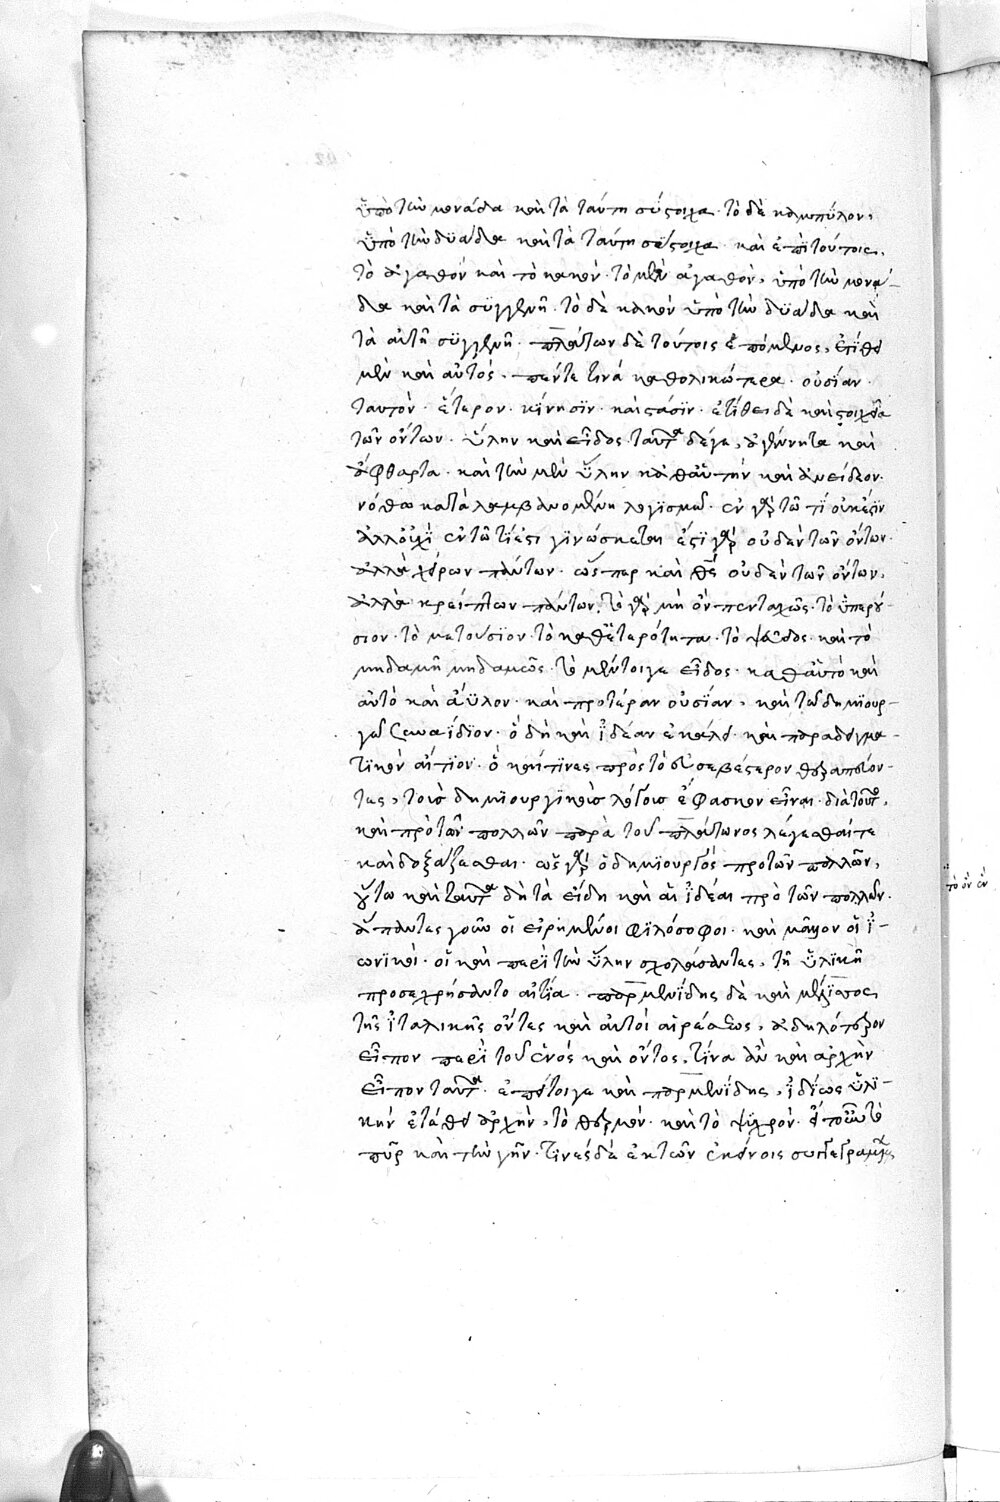 ὑπὸ τὴν μονάδα καὶ τὰ ταύτη σύστοιχα. τὸ δὲ καμπύλον,
ὑπὸ τὴν δυάδα καὶ τὰ ταύτη σύστοιχα. καὶ ἐπὶ τούτοις,
τὸ ἀγαθὸν καὶ τὸ κακόν. τὸ μὲν ἀγαθὸν, ὑπὸ τὴν μονά-
δα καὶ τὰ συγγενῆ. τὸ δὲ κακὸν ὑπὸ τὴν δυάδα καὶ
τὰ αὐτῆ συγγενῆ. πλάτων δὲ τούτοις ἑπόμενος, ἐτίθει
μὲν καὶ αὐτός. πέντε τινὰ καθολικώτερα. οὐσίαν.
ταυτὸν. ἕτερον. κίνησιν. καὶ στάσιν. ἐτίθει δὲ καὶ στοιχεῖα
τῶν ὄντων. ὕλην καὶ εἶδος. ταῦτα δέγε, ἀγέννητα καὶ
ἄφθαρτα. καὶ τὴν μὲν ὕλην καθ αὑτὴν καὶ ἀνείδεον.
νόθω καταλαμβανομένην λογισμῶ. ἐν γὰρ τῶ τί οὐκ ἔστιν
ἀλλ οὐχὶ ἐν τῶ τί ἐστι γινώσκεται ἐστὶ γὰρ οὐδὲν τῶν ὄντων.
ἀλλὰ χεῖρων πάντων. ὥσπερ καὶ θεὸς οὐδὲν τῶν ὄντων,
ἀλλὰ κρείττων πάντων. τὸ γὰρ μὴ ὂν πενταχῶς. τὸ ὑπερού-
σιον. τὸ κατουσίον. τὸ καθ ἑτερότητα. τὸ ψεῦδος. καὶ τὸ
μηδαμῆ μηδαμῶς. τὸ μέντοιγε εἶδος. καθ αὑτὸ καὶ
αὐτὸ καὶ ἄϋλον. καὶ προτέραν οὐσίαν, καὶ τῶ δημιουρ-
γῶ συναΐδιον. ὃ δὴ καὶ ἰδέαν ἐκάλει. καὶ παραδειγμα-
τικὸν αἴτιον. ὃ καί τινες πρὸς τὸ εὐσεβέστερον θεραπεύον-
τες, τοισ δημιουργικοὶσ λόγοισ ἔφασκον εἶναι. διὰ τοῦτο,
καὶ πρὸ τῶν πολλῶν παρὰ τοῦ πλάτωνος λέγεσθαί τε
καὶ δοξάζεσθαι. ὡς γὰρ ὁ δημιουργὸς πρὸ τῶν πολλῶν,
οὕτω καὶ ταῦτα δὴ τὰ εἴδη καὶ αἱ ἰδέαι πρὸ τῶν πολλῶν.
ἅπαντας γοῦν οἱ εἰρημένοι φιλόσοφοι. καὶ μᾶλλον οἱ ἰ-
ωνικοὶ. οἳ καὶ περὶ τὴν ὕλην σχολάσαντες, τῆ ὑλικῆ
προσεχρήσαντο αἰτία. παρμενίδης δὲ καὶ μέλισσος
τῆς ἰταλικῆς ὄντες καὶ αὐτοὶ αἱρέσεως, ἀδηλότερον
εἶπον περὶ τοῦ ἑνός καὶ ὄντος. τίνα ἂν καὶ ἀρχὴν
εἶπον ταῦτα. ἐπεί τοιγε καὶ παρμενίδης, ἰδίως ὑλι-
κὴν ἐτάθει ἀρχὴν, τὸ θερμὸν. καὶ τὸ ψυχρὸν. ἤτοι τὸ
πῦρ καὶ τὴν γῆν. τινὲς δὲ ἐκ τῶν ἐκείνοις συγγεγραμμένων